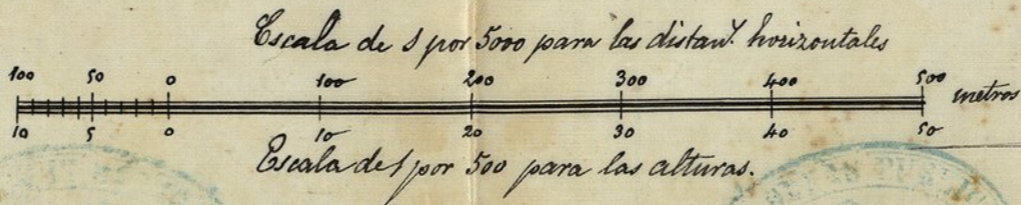 Escala de 1 por 5000 para las distanˢ. horizontales
100 50 0 100 200 300 400 500
metros
10 5 0 10 20 30 40 50
Escala de 1 por 500 para las alturas.